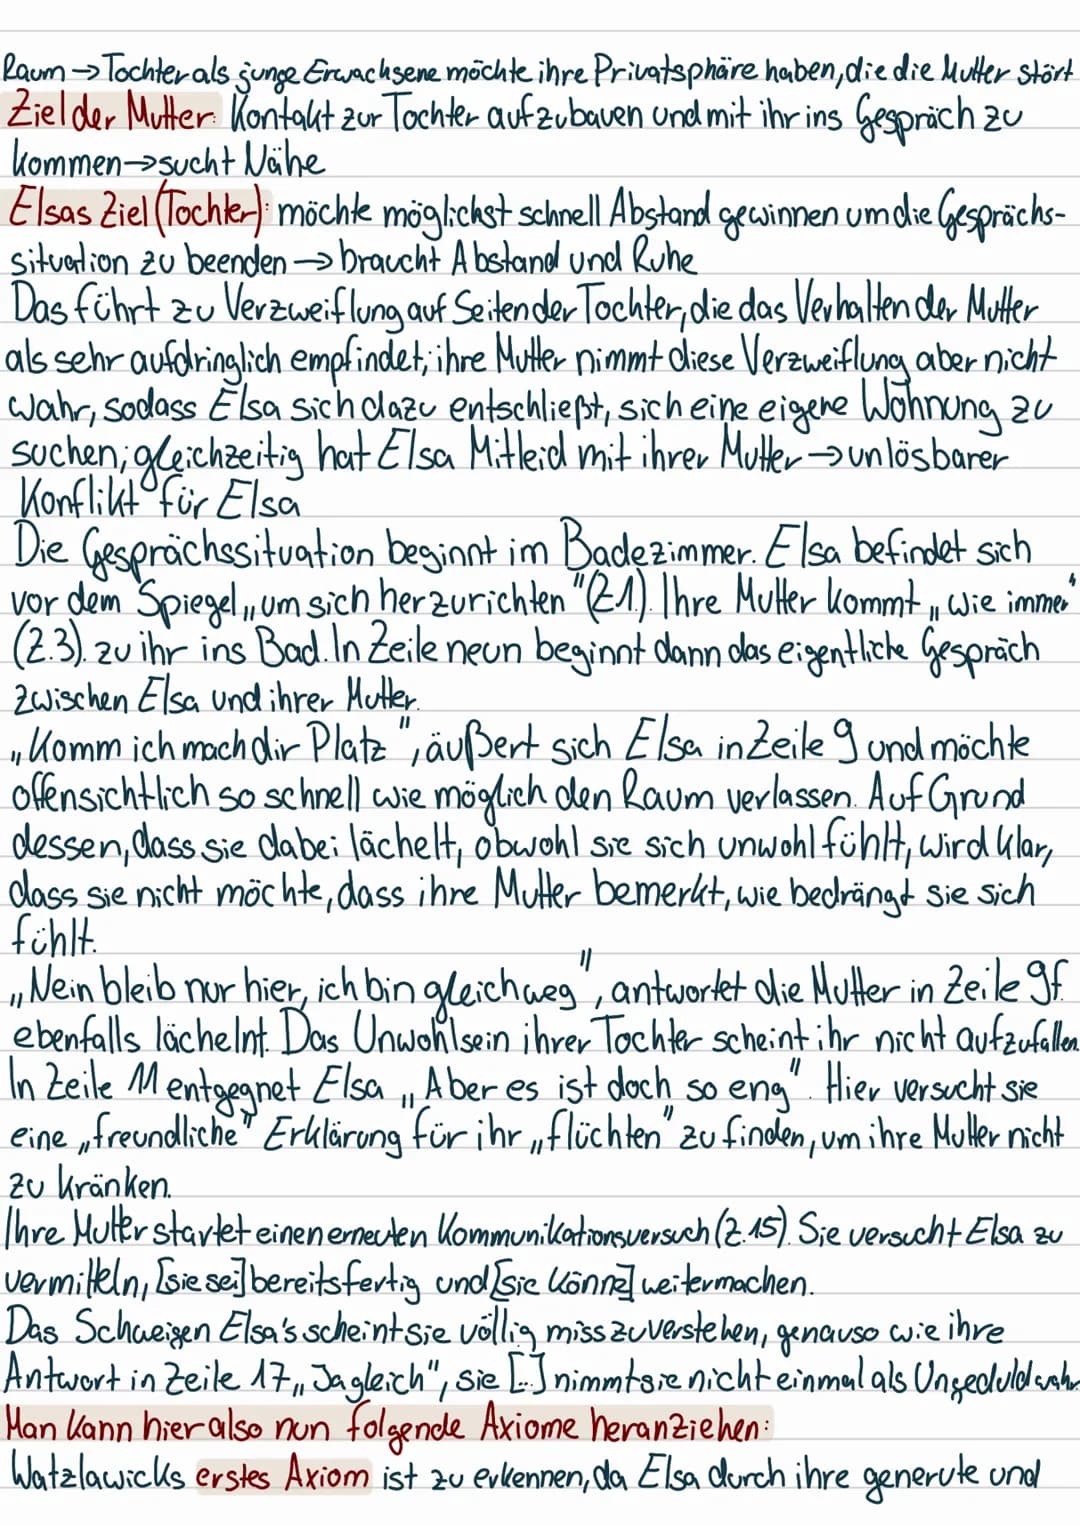 Raum → Tochter als junge Erwachsene möchte ihre Privatsphäre haben, die die Mutter stört
Ziel der Mutter: Kontakt zur Tochter aufzubauen und mit ihr ins Gespräch zu
kommen → sucht Nähe
Elsas Ziel (Tochter): möchte möglichst schnell Abstand gewinnen um die Gesprächs-
situation zu beenden → braucht Abstand und Ruhe
Das führt zu Verzweiflung auf Seiten der Tochter, die das Verhalten der Mutter
als sehr aufdringlich empfindet; ihre Mutter nimmt diese Verzweiflung aber nicht
wahr, sodass Elsa sich dazu entschließt, sich eine eigene Wohnung zu
suchen; gleichzeitig hat Elsa Mitleid mit ihrer Mutter → unlösbarer
Konflikt für Elsa
Die Gesprächssituation beginnt im Badezimmer. Elsa befindet sich
vor dem Spiegel „um sich herzurichten" (Z.1). Ihre Mutter kommt „wie immer"
(Z.3). zu ihr ins Bad. In Zeile neun beginnt dann das eigentliche Gespräch
zwischen Elsa und ihrer Mutter.
„Komm ich mach dir Platz", äußert sich Elsa in Zeile 9 und möchte
offensichtlich so schnell wie möglich den Raum verlassen. Auf Grund
dessen, dass sie dabei lächelt, obwohl sie sich unwohl fühlt, wird klar,
dass sie nicht möchte, dass ihre Mutter bemerkt, wie bedrängt sie sich
fühlt.
„Nein bleib nur hier, ich bin gleich weg", antwortet die Mutter in Zeile 9f.
ebenfalls lächelnt. Das Unwohlsein ihrer Tochter scheint ihr nicht aufzufallen.
In Zeile 11 entgegnet Elsa „Aber es ist doch so eng". Hier versucht sie
eine „freundliche" Erklärung für ihr „flüchten" zu finden, um ihre Mutter nicht
zu kränken.
Ihre Mutter startet einen erneuten Kommunikationsversuch (Z.15). Sie versucht Elsa zu
vermitteln, [sie sei] bereits fertig und [sie könne] weitermachen.
Das Schweigen Elsa's scheint sie völlig misszuverstehen, genauso wie ihre
Antwort in Zeile 17 „Ja gleich", sie [...] nimmt sie nicht einmal als Ungeduld wahr.
Man kann hier also nun folgende Axiome heranziehen:
Watzlawicks erstes Axiom ist zu erkennen, da Elsa durch ihre generute und